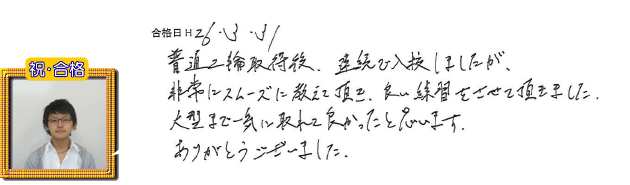 合格日 H 26.3.31
祝・合格
普通二輪取得後、連続で入校しましたが、
非常にスムーズに教えて頂き、良い練習をさせて頂きました。
大型まで一気に取れて良かったと思います。
ありがとうございました。